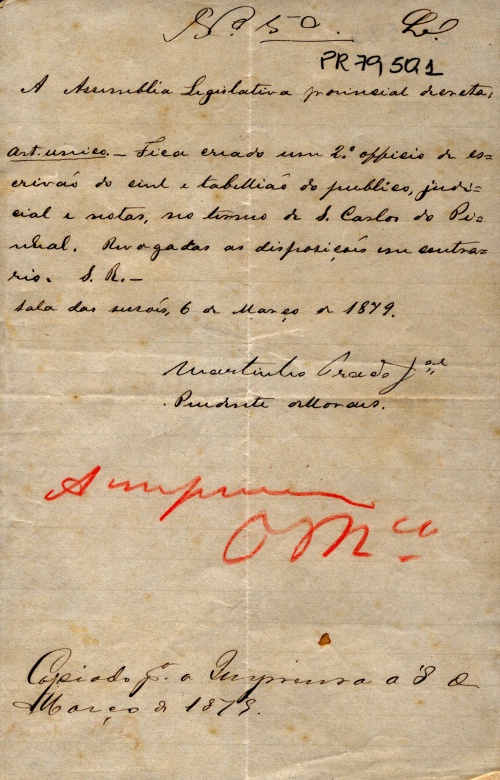 Nº 50. L.
PR79501
A Assemblia Legislativa provincial decreta;
Art. unico. — Fica criado um 2.º officio de es-
crivão do civil e tabellião do publico, judi-
cial e notas, no termo de S. Carlos do Pi-
nhal. Revogadas as disposições em contra-
rio. S. R. —
Sala das sessões, 6 de Março de 1879.
Martinho Prado Jor
Prudente de Moraes.
A imprimir
Copiado pª a Imprensa a 8 de
Março de 1879.